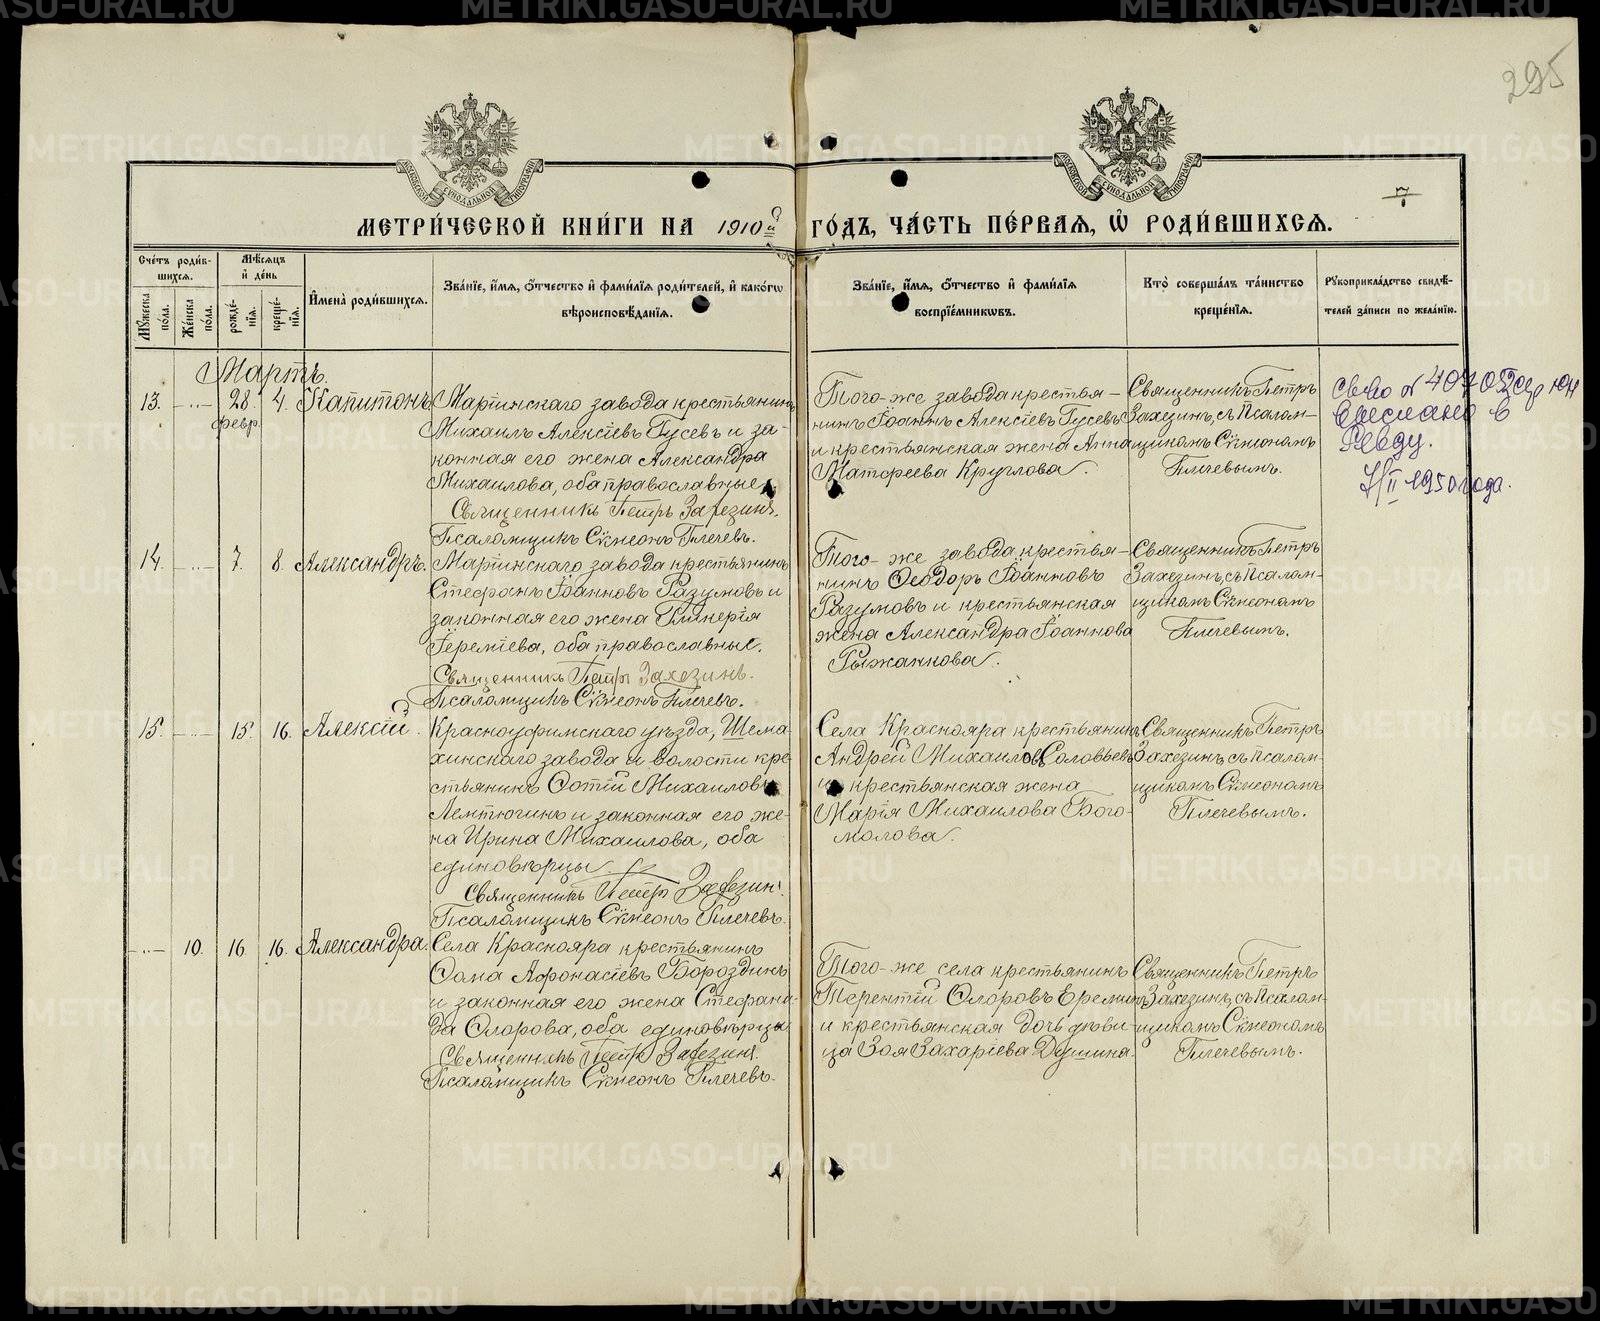 295
7
МЕТРИ́ЧЕСКОЙ КНИ́ГИ НА 1910й ГО́ДЪ, ЧА́СТЬ ПЕ́РВАЯ, Ѡ РОДИ́ВШИХСЯ.
Счетъ роди́в-
шихся.
Му́жеска по́ла.
Же́нска по́ла.
Мѣ́сяцъ
и де́нь
рожде́-
нія.
креще́-
нія.
Имена̀ роди́вшихся.
Зва́ніе, и́мя, о́тчество и фами́лія роди́телей, и како́гѡ
вѣроисповѣ́данія.
Зва́ніе, и́мя, о́тчество и фами́лія
воспріе́мниковъ.
Кто̀ соверша́лъ та́инство
креще́нія.
Рꙋкоприкла́дство свидѣ́-
телей за́писи по жела́нію.
Мартъ.
13. 28. 4. Капитонъ
февр.
Мартинскаго завода крестьянинъ
Михаилъ Алексіевъ Гусевъ и за-
конная его жена Александра
Михаилова, оба православные
Священникъ Петръ Захезинъ.
Псаломщикъ Сѵмеонъ Плечевъ.
Того-же завода крестья-
нинъ Іоаннъ Алексіевъ Гусевъ
и крестьянская жена Анна
Матѳеева Круглова.
Священникъ Петръ
Захезинъ, съ Псалом-
щикомъ Сѵмеономъ
Плечевымъ.
Ревду.
II 1950 года.
14. 7. 8. Александръ.
Мартинскаго завода крестьянинъ
Стефанъ Іоанновъ Разумовъ и
законная его жена Гликерія
Іереміева, оба православные.
Священникъ Петръ Захезинъ.
Псаломщикъ Сѵмеонъ Плечевъ.
Того-же завода крестья-
нинъ Ѳеодоръ Іоанновъ
Разумовъ и крестьянская
жена Александра Іоаннова
Рыжанкова.
Священникъ Петръ
Захезинъ, съ Псалом-
щикомъ Сѵмеономъ
Плечевымъ.
15. 15. 16. Алексій.
Красноуфимскаго уѣзда, Шема-
хинскаго завода и волости кре
стьянинъ Фотій Михаиловъ
Лемтюгинъ и законная его же-
на Ирина Михаилова, оба
единовѣрцы
Священникъ Петръ Захезинъ.
Псаломщикъ Сѵмеонъ Плечевъ.
Села Краснояра крестьянинъ
Андрей Михаиловъ Соловьевъ
и крестьянская жена
Марія Михаилова Бого-
молова.
Священникъ Петръ
Захезинъ, съ Псалом-
щикомъ Сѵмеономъ
Плечевымъ.
10. 16. 16. Александра.
Села Краснояра крестьянинъ
Фома Афонасіевъ Бороздинъ
и законная его жена Стефани-
да Флорова, оба единовѣрцы
Священникъ Петръ Захезинъ.
Псаломщикъ Сѵмеонъ Плечевъ.
Того-же села крестьянинъ
Терентій Флоровъ Ереминъ
и крестьянская дочь дѣви-
ца Зоя Захаріева Душина.
Священникъ Петръ
Захезинъ, съ Псалом-
щикомъ Сѵмеономъ
Плечевымъ.
METRIKI.GASO-URAL.RU